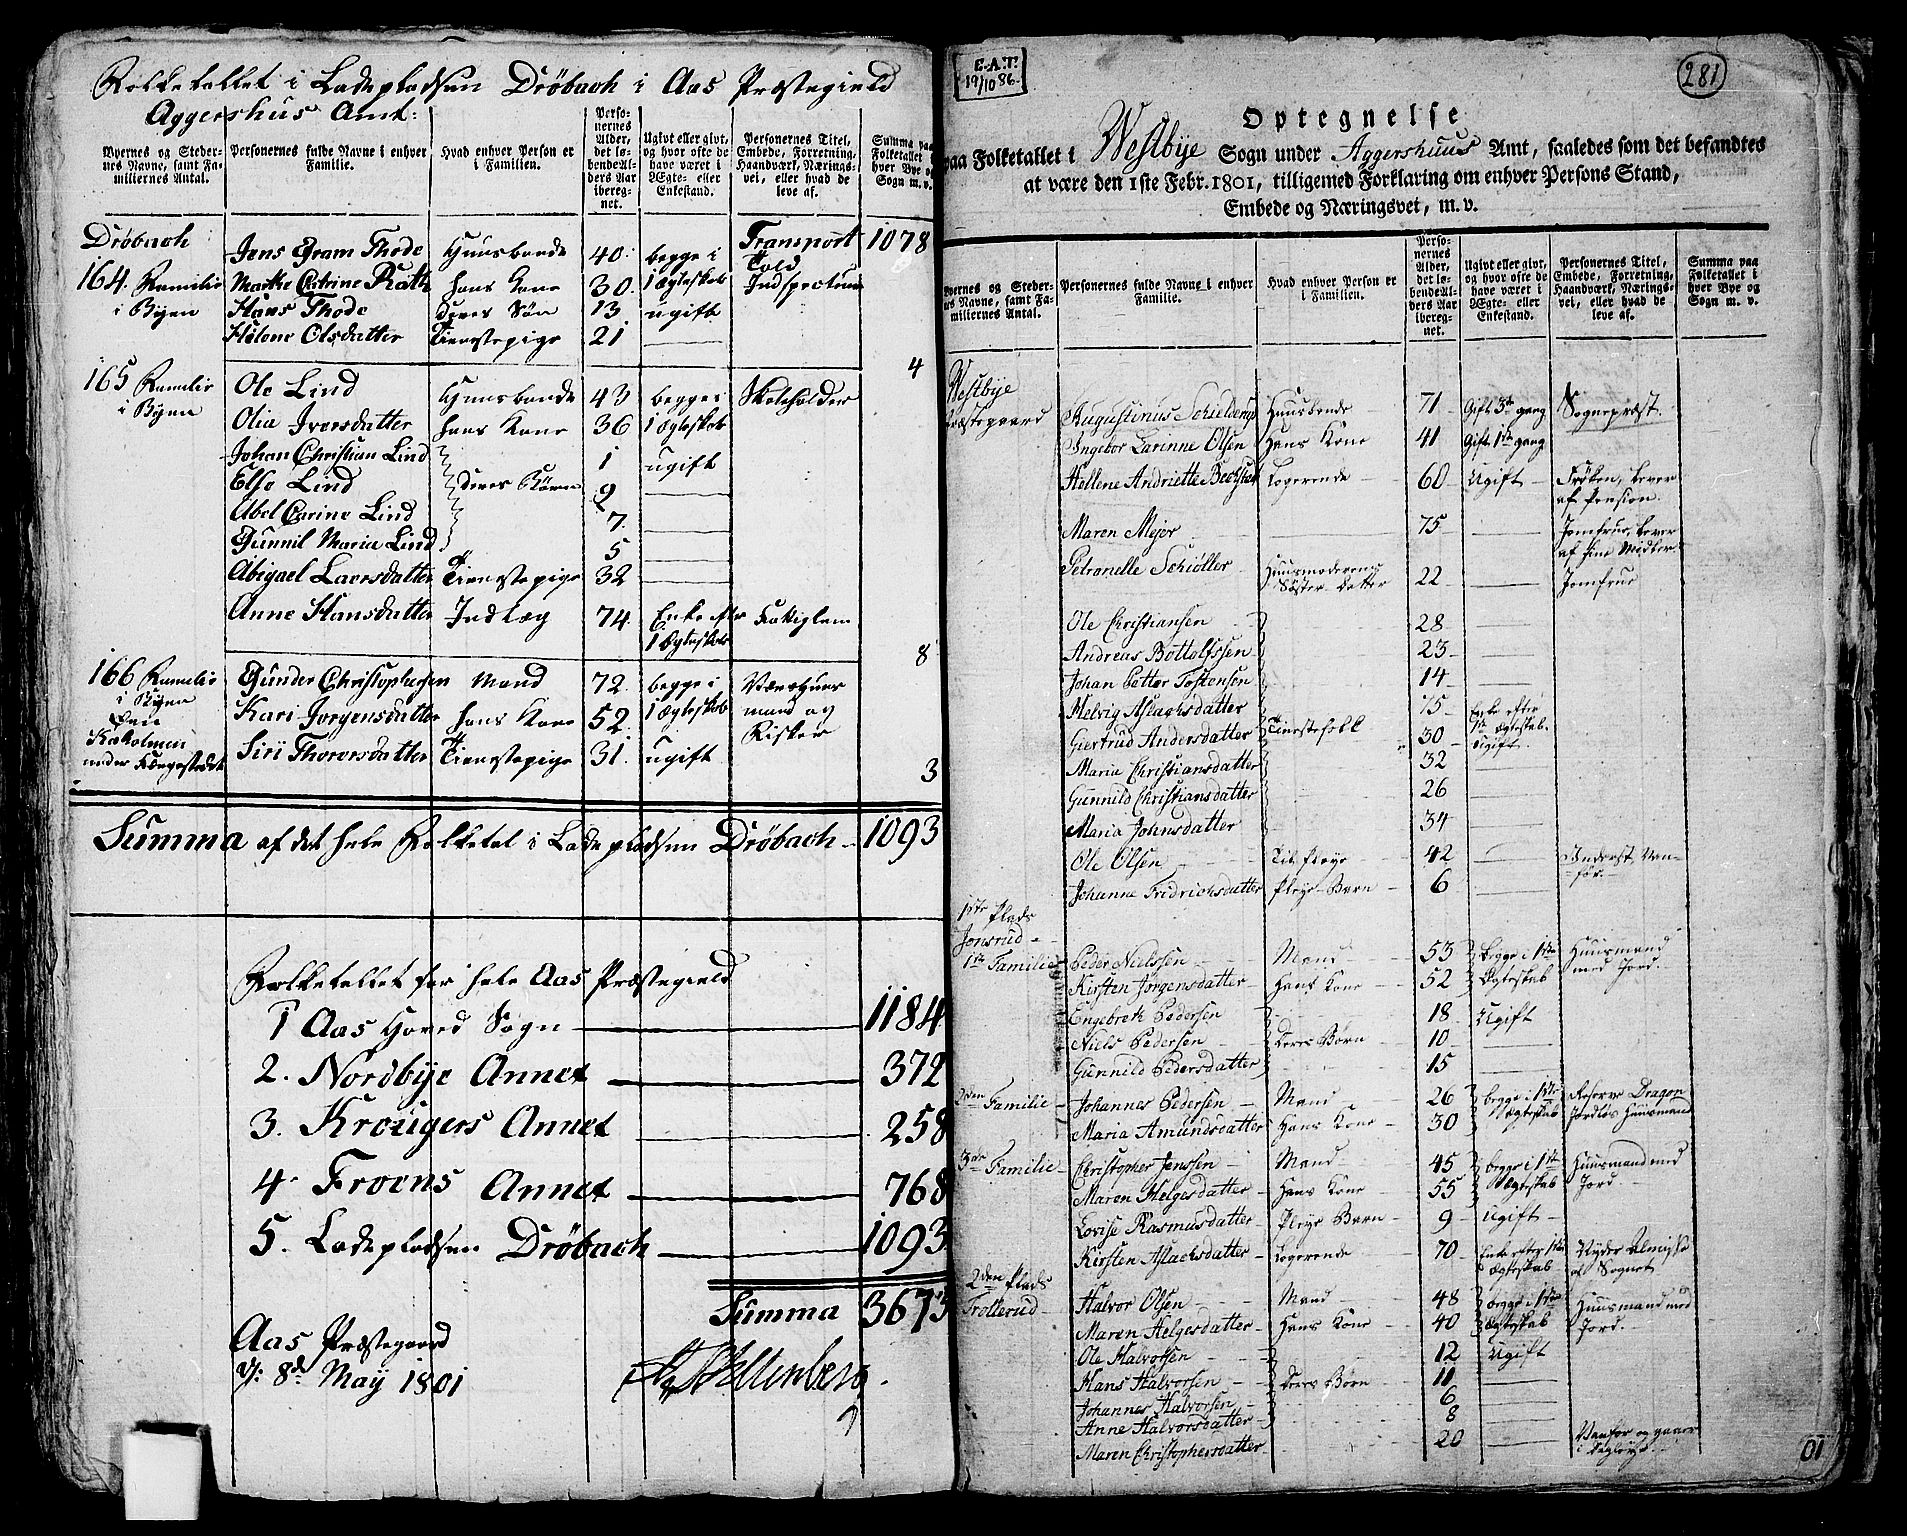 Folketallet i Ladepladsen Drøbach i Aas Præstegield
Aggershus Amt:
Byernes og Stedernes Navne, samt Familiernes Antal.
Personernes fulde Navne i enhver Familie.
Hvad enhver Person er i Familien.
Personernes Alder, det løbende Alders Aar iberegnet.
Ugivt eller givt, og hvor ofte de have været i Ægte- eller Enkestand.
Personernes Titel, Embede, Forretning, Haandværk, Næringsvei, eller hvad de leve af.
Summa paa Folketallet i hver Bye og Sogn m. v.
Transport 1078
Drøbach Jens Gram Thode Huusbonde 40 begge i Told
164 Familie Marthe Catrine Rath hans Kone 30 1 Ægteskab Inspecteur
i Byen Hans Thode deres Søn 13 ugift
Helene Olsdatter Tienestepige 21 —
4
165 Familie Ole Lind Huusbonde 43 begge i Skoleholder
i Byen Olia Iversdatter hans Kone 36 1 Ægteskab
Johan Christian Lind 1 ugift
Else Lind deres Børn 9 —
Abel Carine Lind 7 —
Gunnil Maria Lind 5 —
Abigael Laersdatter Tienestepige 32 —
Anne Hansdatter Indlæg 74 Enke efter
1 Ægteskab
8
166 Familie Gunder Christophersen Mand 72 begge i
i Byen Kari Jorgensdatter hans Kone 52 1 Ægteskab mand og
Kaholmen Siri Thorersdatter Tienestepige 31 ugift Fisker
under 3
Summa af det hele Folketal i Ladepladsen Drøbach 1093
Folketallet for hele Aas Præstegield
1 Aas Hoved Sogn 1184
2. Nordbye Annex 372
3. Krougers Annex 258
4. Froens Annex 768
5. Ladepladsen Drøbach 1093
Summa 3673
Aas Præstegaard
d: 8de Maÿ 1801
E.A.T.
19/10 86.
281
Optegnelse
paa Folketallet i Westbye Sogn under Aggershuus Amt, saaledes som det befandtes
at være den 1ste Febr. 1801, tilligemed Forklaring om enhver Persons Stand,
Embede og Næringsvei, m. v.
Byernes og Stedernes Navne, samt Familiernes Antal.
Personernes fulde Navne i enhver Familie.
Hvad enhver Person er i Familien.
Personernes Alder, det løbende Alders Aar iberegnet.
Ugivt eller givt, og hvor ofte de have været i Ægte- eller Enkestand.
Personernes Titel, Embede, Forretning, Haandværk, Næringsvei, eller hvad de leve af.
Summa paa Folketallet i hver Bye og Sogn m. v.
Westbye
Præstegaard Augustinus Schielderup Huusbonde 71 Gift 3de gang Sognepræst.
Ingebor Carinne Olsen Hans Kone 41 Gift 1ste gang
Hellene Andriette Logerende 60 Ugift Frøken, lever
af Pension.
Maren Mejer 75 — Jomfrue, lever
af sine Midler
Petronelle Schiøller Huusmoderens
Søster Datter 22 — Jomfrue
Ole Christiansen 28 —
Andreas Bottolfssen 23 —
Johan Petter Tostensen 14 —
Helvig Aslachsdatter 75 Enke efter
1ste Ægteskab.
Giertrud Andersdatter Tienestefolk 30 Ugift.
Maria Christiansdatter 32 —
Gunnild Christiansdatter 26 —
Maria Johnsdatter 34 —
Ole Olsen Til Pleye 42 — Inderst, Van-
før.
Johanne Fridrichsdatter Pleye-Barn 6 —
1ste Plads
Jonsrud
1ste Familie Peder Nielssen Mand 53 Begge i 1ste Huusmand
Kirsten Jørgensdatter Hans Kone 52 Ægteskab med Jord.
Engebreth Pedersen 18 Ugift
Niels Pedersen Deres Børn 10 —
Gunnild Pedersdatter 15 —
2den Familie Johannes Pedersen Mand 26 begge i 1ste Reserve Dragon
Maria Amundsdatter Hans Kone 30 Ægteskab Jordløs Huusmand
3die Familie Christopher Jenssen Mand 45 begge i 1ste Huusmand med
Maren Helgesdatter Hans Kone 55 Ægteskab Jord.
Lovise Rasmusdatter Pleye Barn 9 Ugift
Kirsten Aslachsdatter Logerende 70 Enke efter 1ste Nyder Almisse
Ægteskab af Sognet
2den Plads
Trollerud Halvor Olsen Mand 48 begge i 1ste Huusmand med
Maren Helgesdatter Hans Kone 40 Ægteskab Jord.
Ole Halvorsen 12 Ugift
Hans Halvorsen Deres Børn 11 —
Johannes Halvorsen 6 —
Anne Halvorsdatter 8 —
Maren Christophersdatter 20 — Vanfør og gaaer
i
01